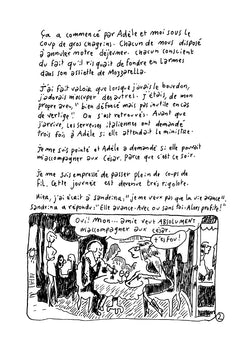 Ça a commencé par Adèle et moi sous le
coup de gros chagrins. Chacun de nous disposé
à annuler notre déjeuner. Chacun conscient
du fait qu'il risquait de fondre en larmes
dans son assiette de Mozzarella.
J'ai fait valoir que lorsque j'avais le bourdon,
j'adorais m'occuper des autres. J'étais, de mon
propre aveu, "bien défoncé mais pas inutile en cas
de vertige". On s'est retrouvés. Avant que
j'arrive, les serveurs italiennes ont demandé
trois fois à Adèle si elle attendait le ministre.
Je me suis pointé et Adèle a demandé si elle pouvait
m'accompagner aux César. Parce que c'est ce soir.
Je me suis empressé de passer plein de coups de
fil. Cette journée est devenue très rigolote.
Hier, j'ai écrit à Sandrina; "je ne veux pas que la vie avance".
Sandrina a répondu: "Elle avance. Avec ou sans toi. Alors profite!"
Oui! Mon... amie veut ABSOLUMENT
m'accompagner aux César.
t'es fou!
2